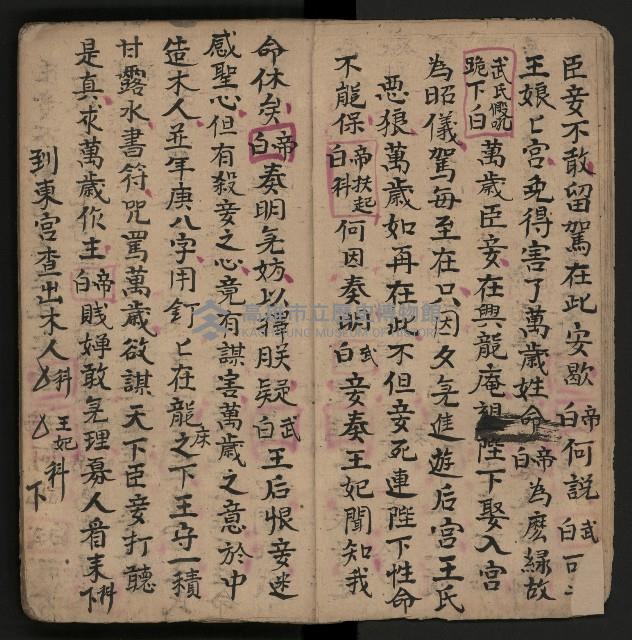 臣妾不敢留駕在此安歇 帝白 何説 武白
王娘匕宮免得害了萬歲姓命 帝白 為麽緑故
武氏假哭跪下白 萬歲臣妾在興龍庵 陛下娶入宮
為昭儀駕每至在只因夕免進遊后宮王氏
惡狼萬歲如再在此不但妾死連陛下性命
不能保 帝扶起白科 何因奏明 武白 妾奏王妃聞知我
命休矣 帝白 奏明免妨以擇朕疑 武白 王后恨妾迷
感聖心但有殺妾之心竟有謀害萬歲之意於中
造木人並年庚八字用釘匕在龍床之下王守一積
甘露水書符咒罵萬歲欲謀天下臣妾打聽
是真求萬歲作主 帝白 賤婢敢免理寡人看来 科下
到東宮查出木人 科 王妃科 下
高雄市立歷史博物館
KAOHSIUNG MUSEUM OF HISTORY